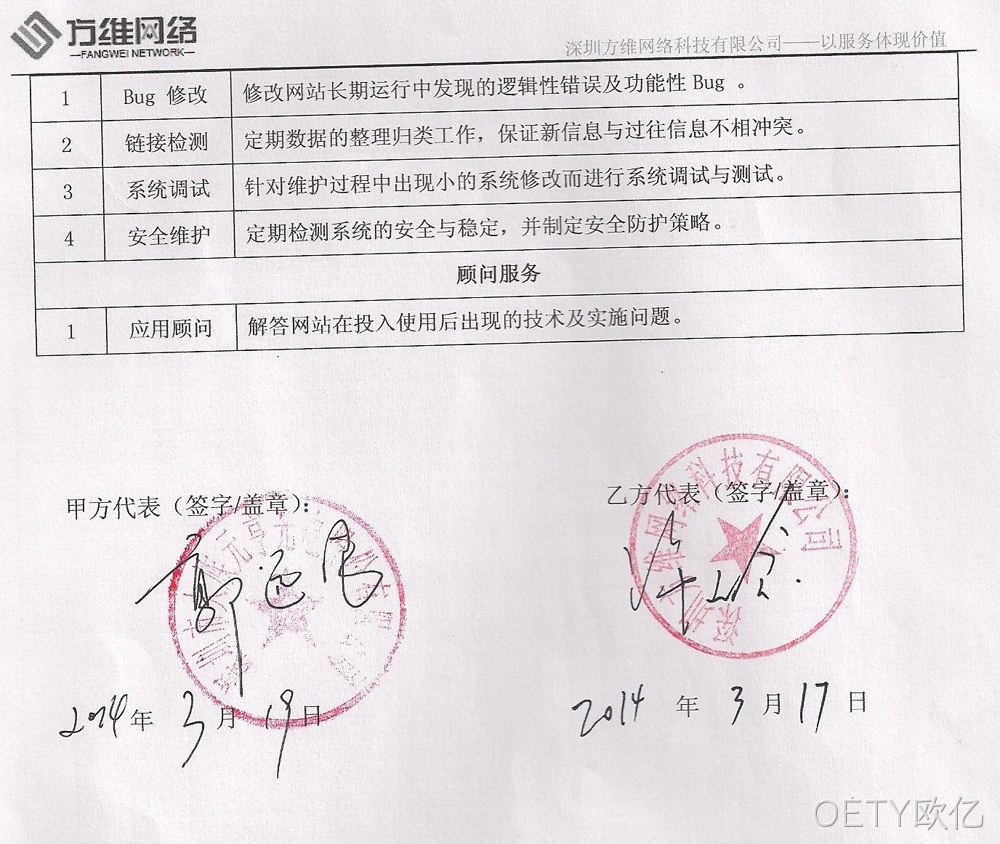 方维网络
—FANGWEI NETWORK—
深圳方维网络科技有限公司——以服务体现价值
1 Bug 修改 修改网站长期运行中发现的逻辑性错误及功能性Bug 。
2 链接检测 定期数据的整理归类工作，保证新信息与过往信息不相冲突。
3 系统调试 针对维护过程中出现小的系统修改而进行系统调试与测试。
4 安全维护 定期检测系统的安全与稳定，并制定安全防护策略。
顾问服务
1 应用顾问 解答网站在投入使用后出现的技术及实施问题。
甲方代表（签字/盖章）：
乙方代表（签字/盖章）：
深圳方维网络科技有限公司
2014年 3月 19日
2014 年 3 月 17 日
OETY欧亿